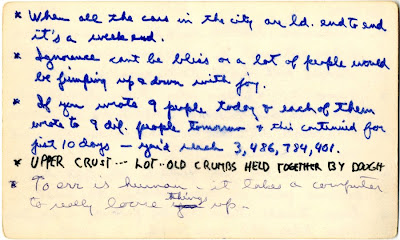 * When all the cars in the city are ld. end to end
it's a week end.
* Ignorence cant be bliss or a lot of people would
be jumping up & down with joy.
* If you wrote 9 people today & each of them
wrote to 9 dif. people tomorrow & this continued for
just 10 days — you'd reach 3,486,784,401.
* UPPER CRUST --- LOT OLD CRUMBS HELD TOGETHER BY DOUGH
* To err is human - it takes a computer
to really louse things up.